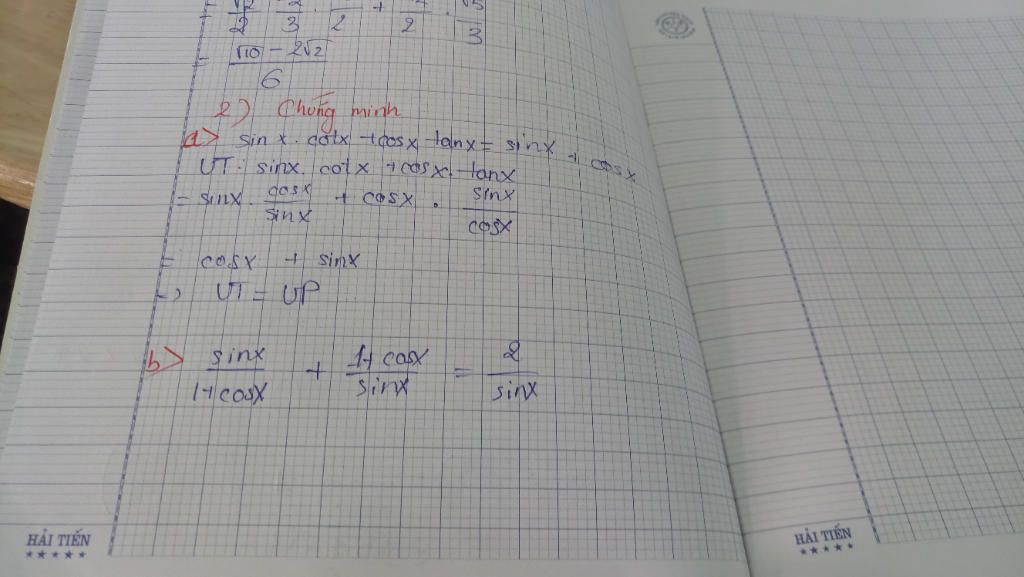 = √10 - 2√2 / 6
2) Chứng minh
a> sin x . cotx + cosx . tanx = sinx + cosx
VT: sinx . cotx + cosx . tanx
= sinx . cosx / sinx + cosx . sinx / cosx
= cosx + sinx
=> VT = VP
b> sinx / 1+cosx + 1+cosx / sinx = 2 / sinx
HẢI TIẾN
HẢI TIẾN